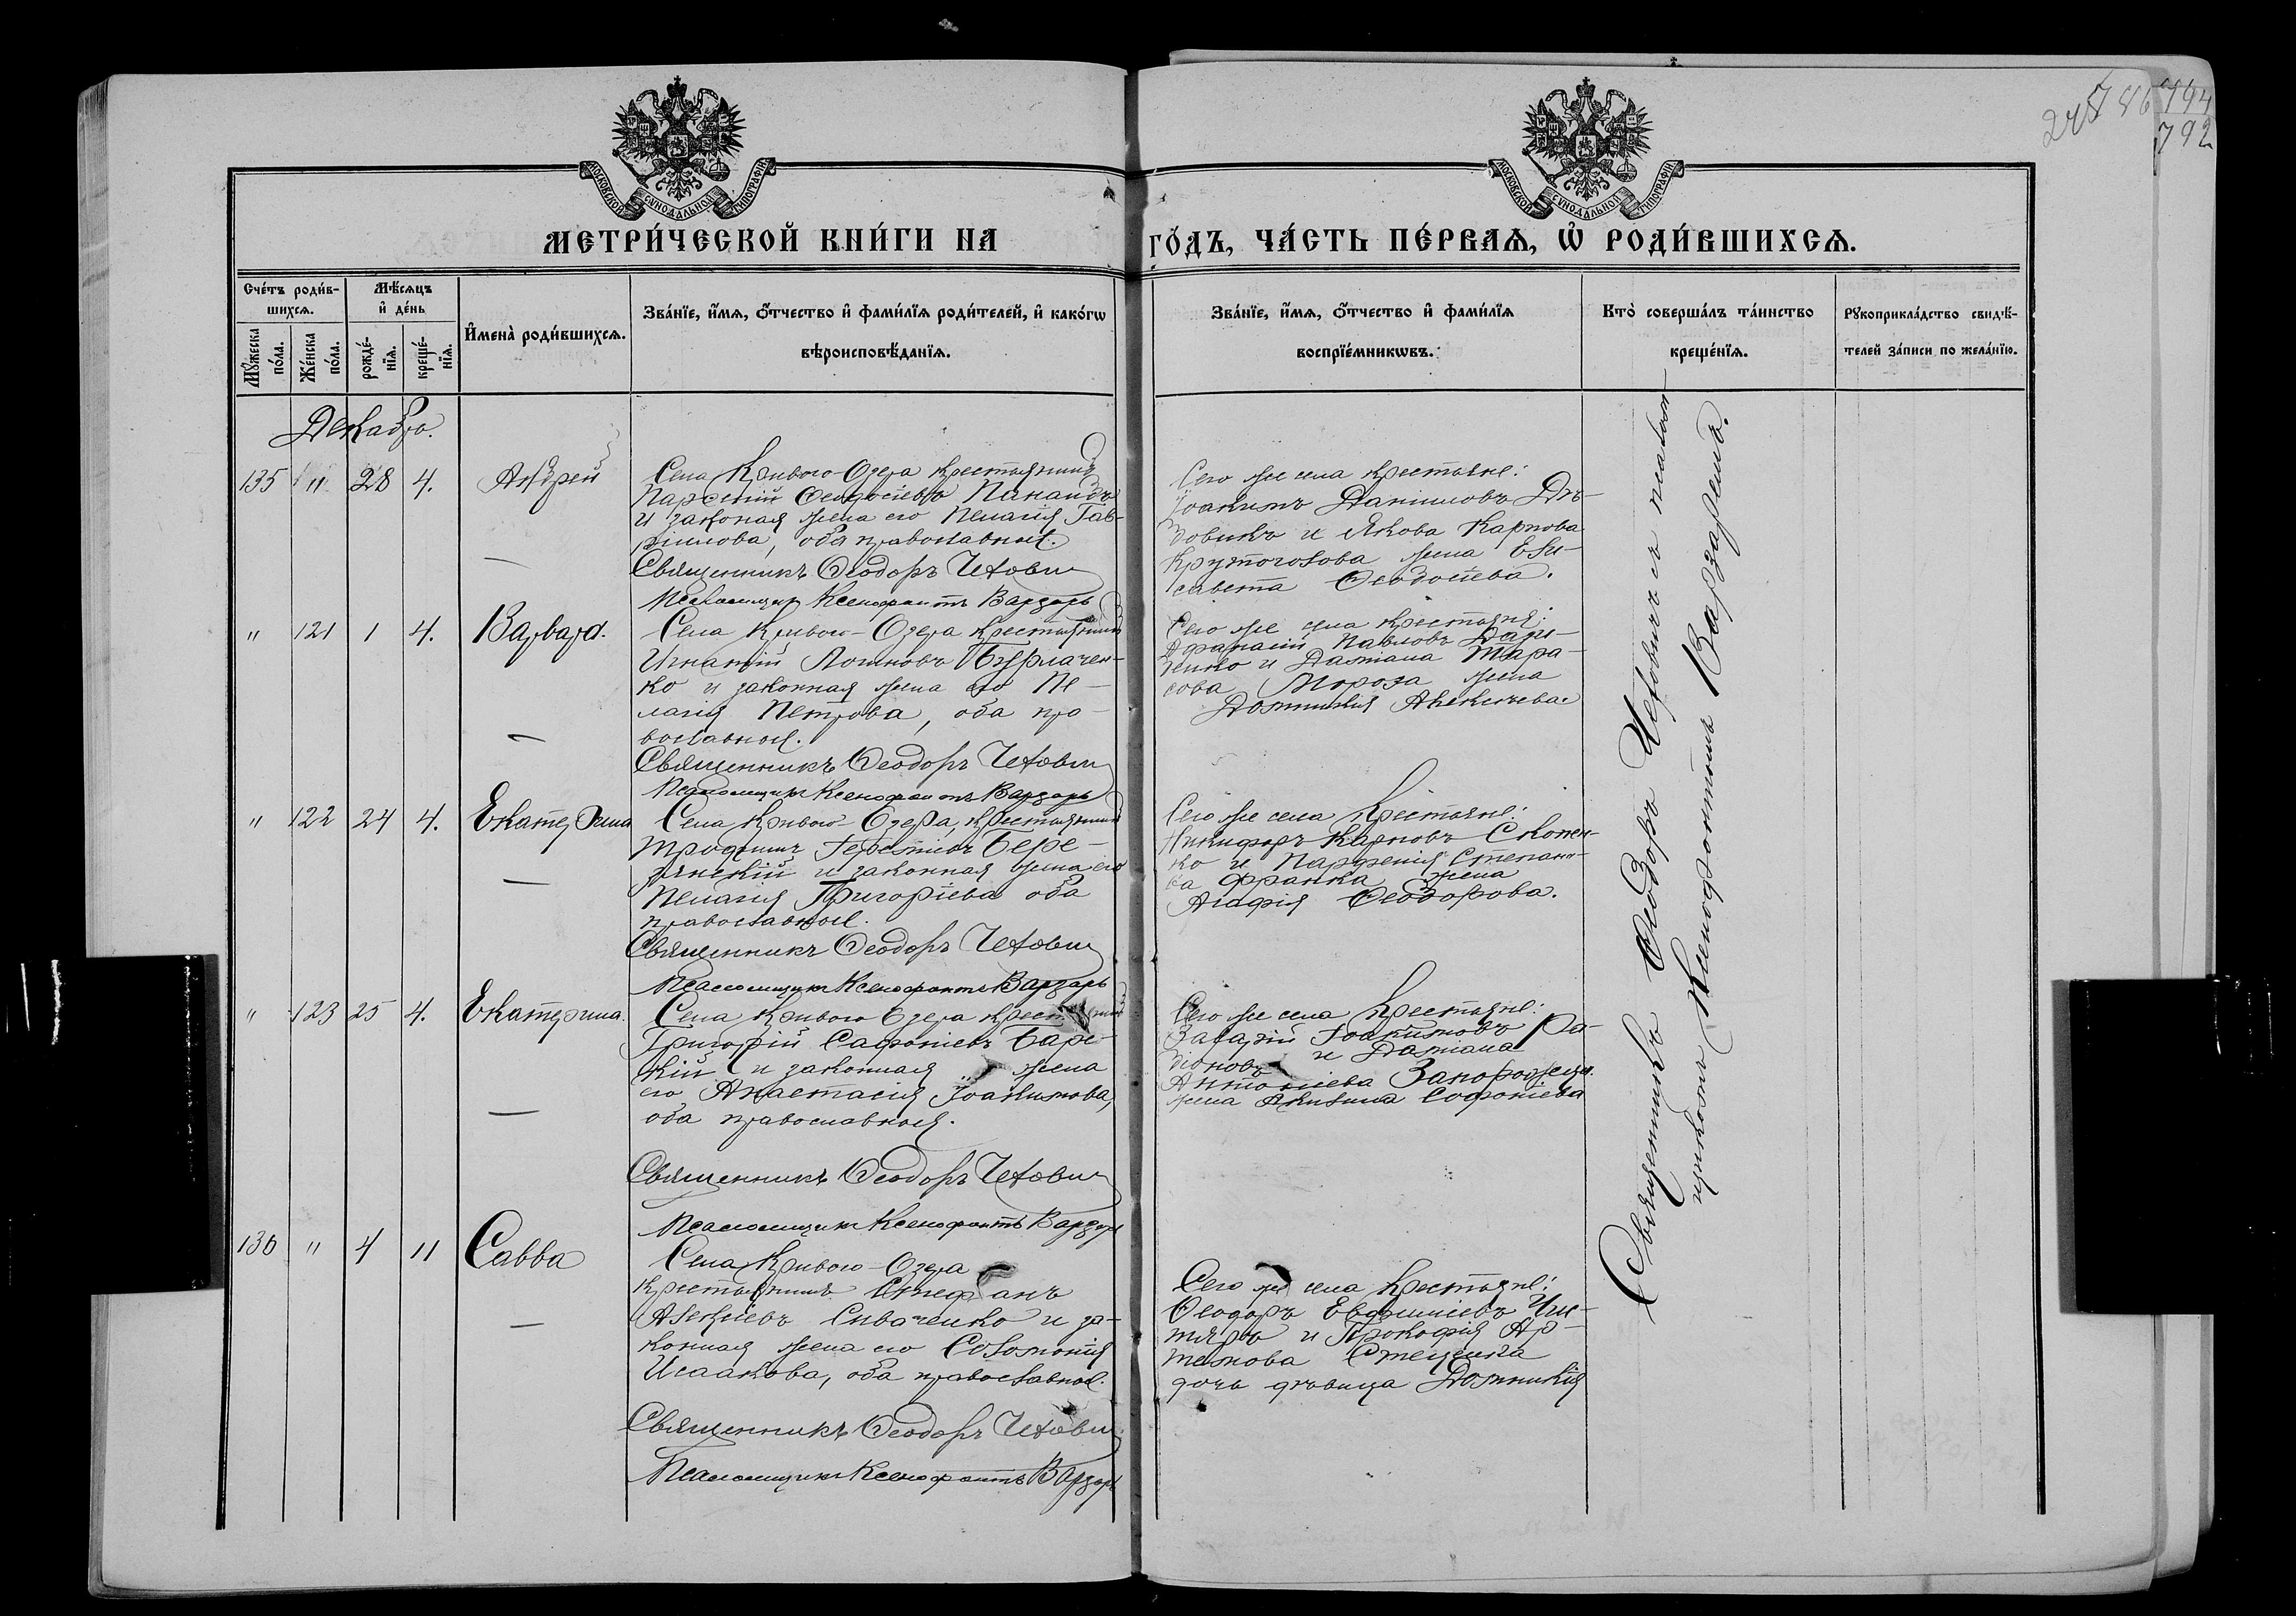 247 86 794
792
МОСКОВСКОЙ СѴНОДАЛЬНОЙ ТИПОГРАФІИ
МОСКОВСКОЙ СѴНОДАЛЬНОЙ ТИПОГРАФІИ
МЕТРИ́ЧЕСКОЙ КНИ́ГИ НА
ГО́ДЪ, ЧА́СТЬ ПЕ́РВАѦ, Ѽ РОДИ́ВШИХСѦ.
Сче́тъ роди́в-
шихсѧ.
Мꙋ́жеска по́ла.
Же́нска по́ла.
Мѣ́сѧцъ
и҆ де́нь
рожде́-
нїѧ.
креще́-
нїѧ.
И҆мена̀ роди́вшихсѧ.
Зва́нїе, и҆́мѧ, ѻ҆́тчество и҆ фами́лїѧ роди́телей, и҆ како́гѡ
вѣроисповѣ́данїѧ.
Зва́нїе, и҆́мѧ, ѻ҆́тчество и҆ фами́лїѧ
воспрїе́мникѡвъ.
Кто̀ соверша́лъ та́инство
креще́нїѧ.
Рꙋкоприкла́дство свидѣ́-
телей за́писи по жела́нїю.
Декабрь.
135 " 28 4. Андрей
Села Кривого-Озера крестьянинъ
Парѳеній Ѳеодосіевъ
и законая жена его Пелагія Гав-
ріилова, оба православные.
Священникъ Ѳеодоръ
Псаломщикъ Ксенофонтъ Варзарь
Сего же села крестьяне:
Іоакимъ Даніиловъ Дѣ-
довикъ и Якова Карпова
Крутоголова жена Ели-
савета Ѳеодосіева.
" 121 1 4. Варвара.
Села Кривого-Озера крестьянинъ
Игнатій Логиновъ Бурлачен-
ко и законная жена его Пе-
лагія Петрова, оба пра-
вославные.
Священникъ Ѳеодоръ
Псаломщикъ Ксенофонтъ Варзарь
Сего же села крестьяне:
Аѳанасій Павловъ
и Даміана Тара-
сова Мороза жена
Домникія Алексіева
" 122 24 4. Екатерина
Села Кривого-Озера, крестьянинъ
Трофимъ Бере-
зянскій и законная жена его
Пелагія Григоріева оба
православные.
Священникъ Ѳеодоръ
Псаломщикъ Ксенофонтъ Варзарь
Сего же села Крестьяне:
Никифоръ Карповъ
ко и Парѳенія Степано-
ва Франка жена
Агафія Ѳеодорова.
" 123 25 4. Екатерина.
Села Кривого Озера
Григорій Сафоніевъ Барс-
кій и законная жена
его Анастасія Іоакимова,
оба православныя.
Священникъ Ѳеодоръ
Псаломщикъ Ксенофонтъ Варзарь
Сего же села Крестьяне:
Захарій Іоакимовъ Ра-
діоновъ и Даміана
Антоніева Запорожца
жена Акилина Софоніева
136 " 4 11 Савва
Села Кривого-Озера
крестьянинъ Стефанъ
Алексіевъ Сиваченко и за-
конная жена его Соломонія
Исаакова, оба православные.
Священникъ Ѳеодоръ
Псаломщикъ Ксенофонтъ Варзарь
Сего же села крестьяне:
Ѳеодоръ Евфиміевъ
и Прокофія Ар-
темова Стеценка
дочь дѣвица Домникія
Священникъ Ѳеодоръ съ псалом-
щикомъ Ксенофонтомъ Варзаремъ.